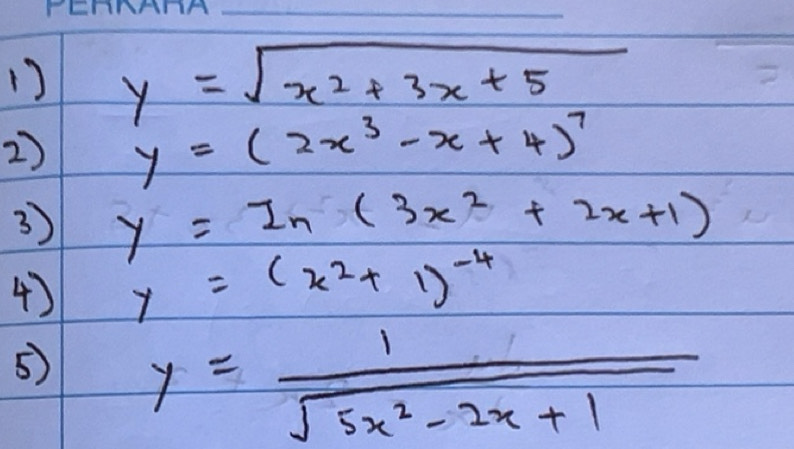 PERKARA
1) y = √(x² + 3x + 5)
2) y = (2x³ - x + 4)⁷
3) y = In (3x² + 2x+1)
4) y = (x² + 1)⁻⁴
5) y = 1 / √(5x² - 2x + 1)